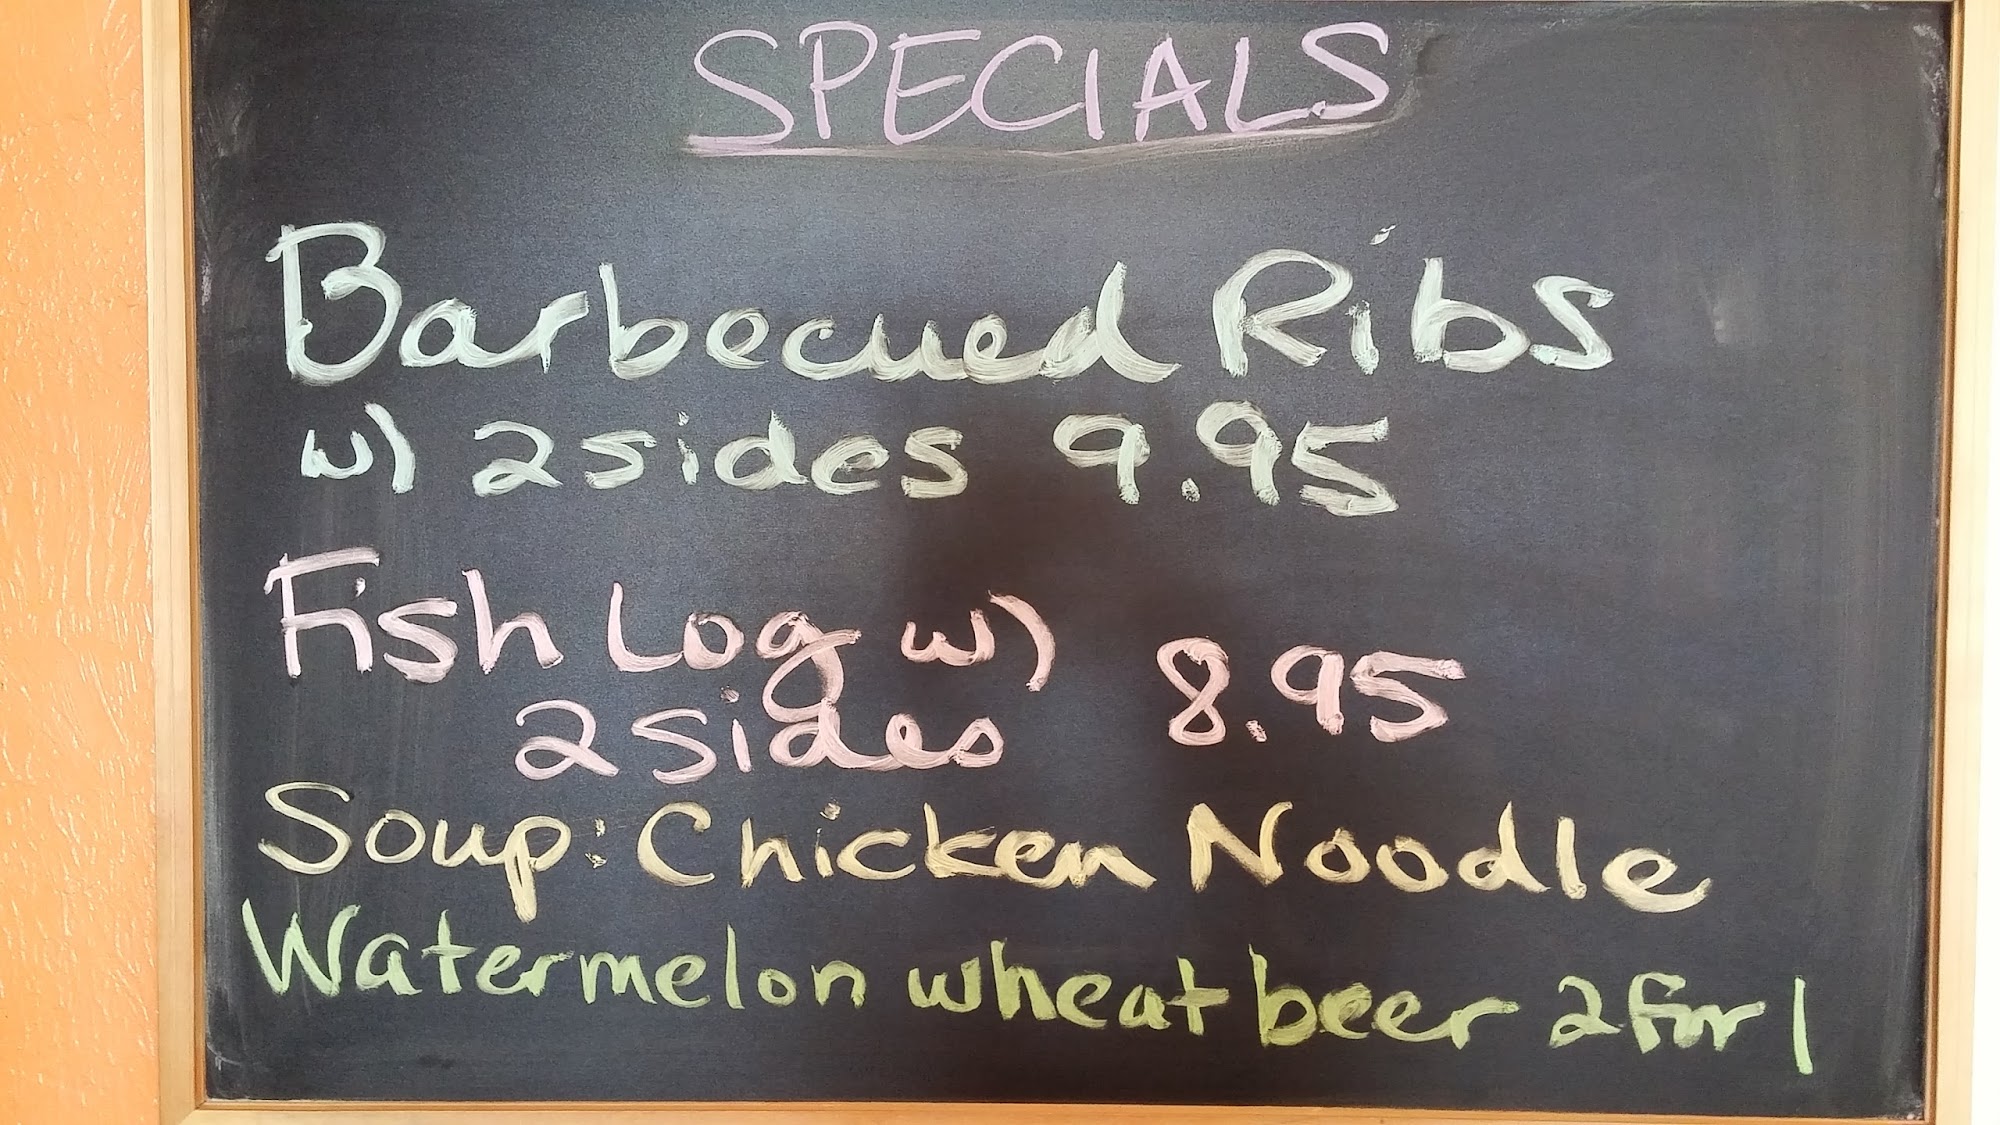 SPECIALS
Barbecued Ribs
w) 2 sides 9.95
Fish Log w) 8.95
2 sides
Soup: Chicken Noodle
Watermelon wheat beer 2 for 1